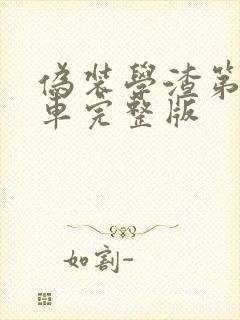 偽装學渣第
車完整版
如割-